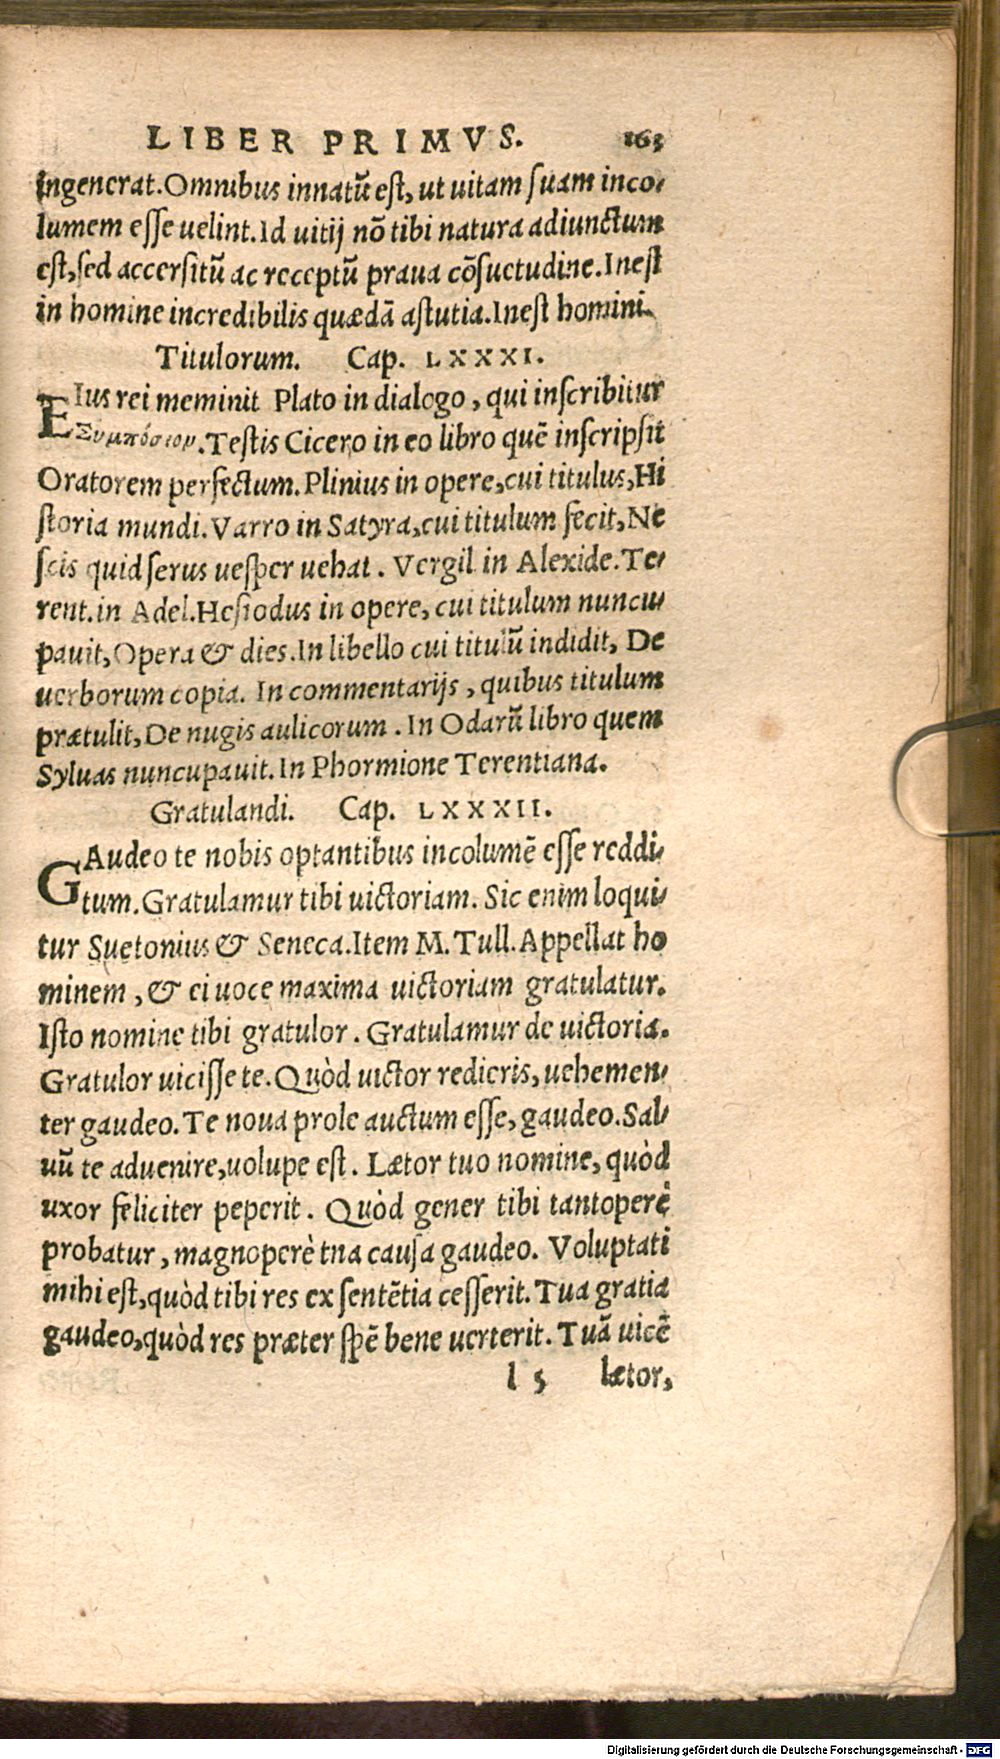 LIBER PRIMVS. 163
ingenerat. Omnibus innatū est, ut uitam suam inco-
lumem esse uelint. Id uitij nō tibi natura adiunctum
est, sed accersitū ac receptū praua cōsuetudine. Inest
in homine incredibilis quædā astutia. Inest homini.
Titulorum. Cap. LXXXI.
EIus rei meminit Plato in dialogo, qui inscribitur
Συμπόσιον. Testis Cicero in eo libro quē inscripsit
Oratorem perfectum. Plinius in opere, cui titulus, Hi
storia mundi. Varro in Satyra, cui titulum fecit, Ne
scis quid serus uesper uehat. Vergil in Alexide. Te-
rent. in Adel. Hesiodus in opere, cui titulum nuncu-
pauit, Opera & dies. In libello cui titulū indidit, De
uerborum copia. In commentarijs, quibus titulum
prætulit, De nugis aulicorum. In Odarū libro quem
Syluas nuncupauit. In Phormione Terentiana.
Gratulandi. Cap. LXXXII.
GAudeo te nobis optantibus incolumē esse reddi-
tum. Gratulamur tibi uictoriam. Sic enim loqui-
tur Suetonius & Seneca. Item M. Tull. Appellat ho
minem, & ei uoce maxima uictoriam gratulatur.
Isto nomine tibi gratulor. Gratulamur de uictoria.
Gratulor uicisse te. Quòd uictor redieris, uehemen-
ter gaudeo. Te noua prole auctum esse, gaudeo. Sal-
uū te aduenire, uolupe est. Lætor tuo nomine, quòd
uxor feliciter peperit. Quòd gener tibi tantoperè
probatur, magnoperè tna causa gaudeo. Voluptati
mihi est, quòd tibi res ex sentētia cesserit. Tua gratia
gaudeo, quòd res præter spē bene uerterit. Tuā uicē
l 5 lætor,
Digitalisierung gefördert durch die Deutsche Forschungsgemeinschaft - DFG